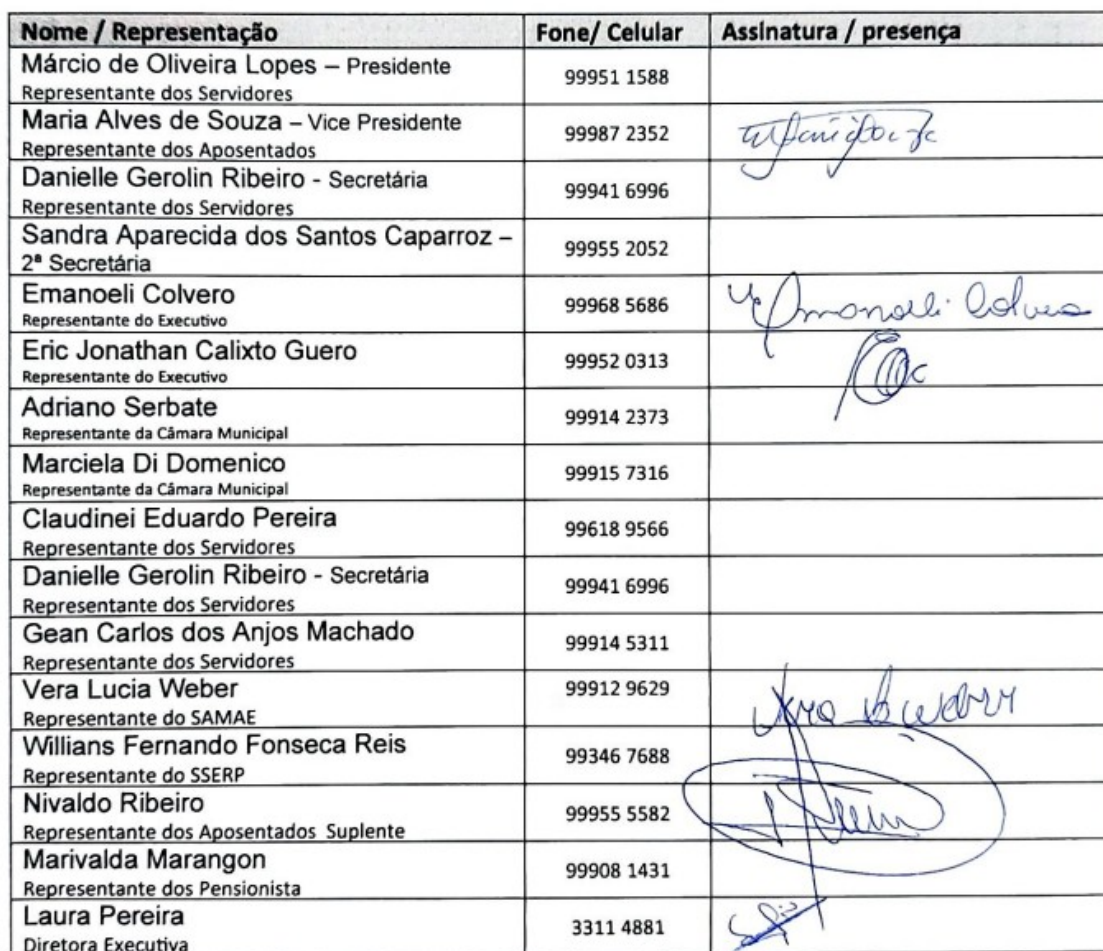 Nome / Representação Fone/ Celular Assinatura / presença
Márcio de Oliveira Lopes – Presidente
Representante dos Servidores
99951 1588
Maria Alves de Souza – Vice Presidente
Representante dos Aposentados
99987 2352
Danielle Gerolin Ribeiro - Secretária
Representante dos Servidores
99941 6996
Sandra Aparecida dos Santos Caparroz –
2ª Secretária
99955 2052
Emanoeli Colvero
Representante do Executivo
99968 5686
Emanoeli Colvero
Eric Jonathan Calixto Guero
Representante do Executivo
99952 0313
Adriano Serbate
Representante da Câmara Municipal
99914 2373
Marciela Di Domenico
Representante da Câmara Municipal
99915 7316
Claudinei Eduardo Pereira
Representante dos Servidores
99618 9566
Danielle Gerolin Ribeiro - Secretária
Representante dos Servidores
99941 6996
Gean Carlos dos Anjos Machado
Representante dos Servidores
99914 5311
Vera Lucia Weber
Representante do SAMAE
99912 9629
Willians Fernando Fonseca Reis
Representante do SSERP
99346 7688
Nivaldo Ribeiro
Representante dos Aposentados Suplente
99955 5582
Marivalda Marangon
Representante dos Pensionista
99908 1431
Laura Pereira
Diretora Executiva
3311 4881